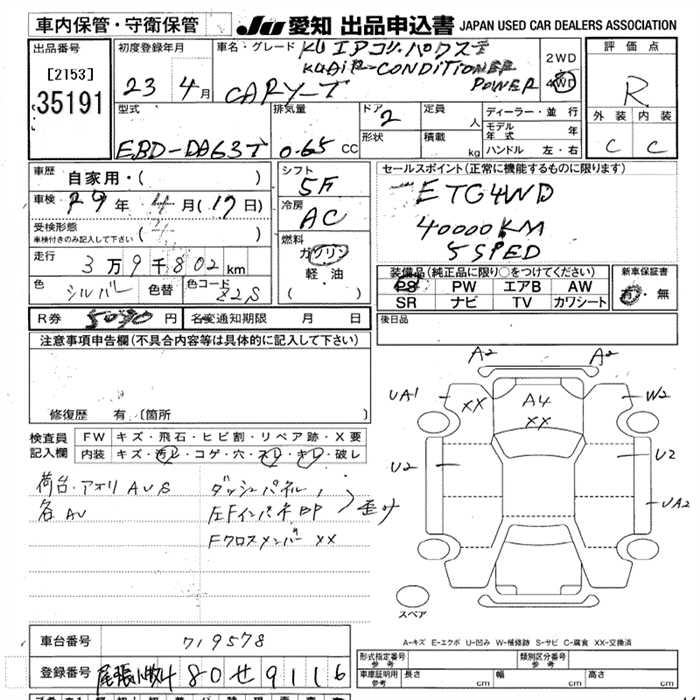 車内保管・守衛保管
JU 愛知 出品申込書 JAPAN USED CAR DEALERS ASSOCIATION
出品番号
[2153]
35191
初度登録年月
23 4月
車名・グレード
KU エアコン・パワステ
CONDITIONER
POWER
CARY-T
2WD
4WD
評価点
R
外装 内装
C C
型式
EBD-DA63T
排気量
0.65 CC
ドア 2
形状
定員 人
積載 kg
ディーラー・並行
モデル年式 年
ハンドル 左・右
車歴 自家用・( )
車検 29年 4月(17日)
受検形態
車検付きのみ記入して下さい ( )
走行 3万9千802km
色 シルバー 色替 色コード Z2S
シフト 5F
冷房 AC
燃料
ガソリン
軽油
( ・ )
セールスポイント(正常に機能するものに限ります)
ETC4WD
40000KM
5SPED
装備品(純正品に限り○をつけてください)
PS PW エアB AW
SR ナビ TV カワシート
新車保証書
有・無
R券 5090円 名変通知期限 月 日
後日品
注意事項申告欄(不具合内容等は具体的に記入して下さい)
修復歴 有(箇所 )
検査員記入欄
FW キズ・飛石・ヒビ割・リペア跡・X要
内装 キズ・汚レ・コゲ・穴・スレ・キレ・破レ
荷台・アオリ AUS
各AU
ダッシュパネル、
左Fインパネ凹P
Fクロスメンバー XX
歪ミ
A2 A2
UA1 XX A4 XX W2
U2 U2
UA2
スペア
A-キズ E-エクボ U-凹み W-補修跡 S-サビ C-腐食 XX-交換済
車台番号 719578
登録番号 尾張小牧 480せ9116
形式指定番号 参考
類別区分番号 参考
車庫証明用 参考 長さ cm 幅 cm 高さ cm